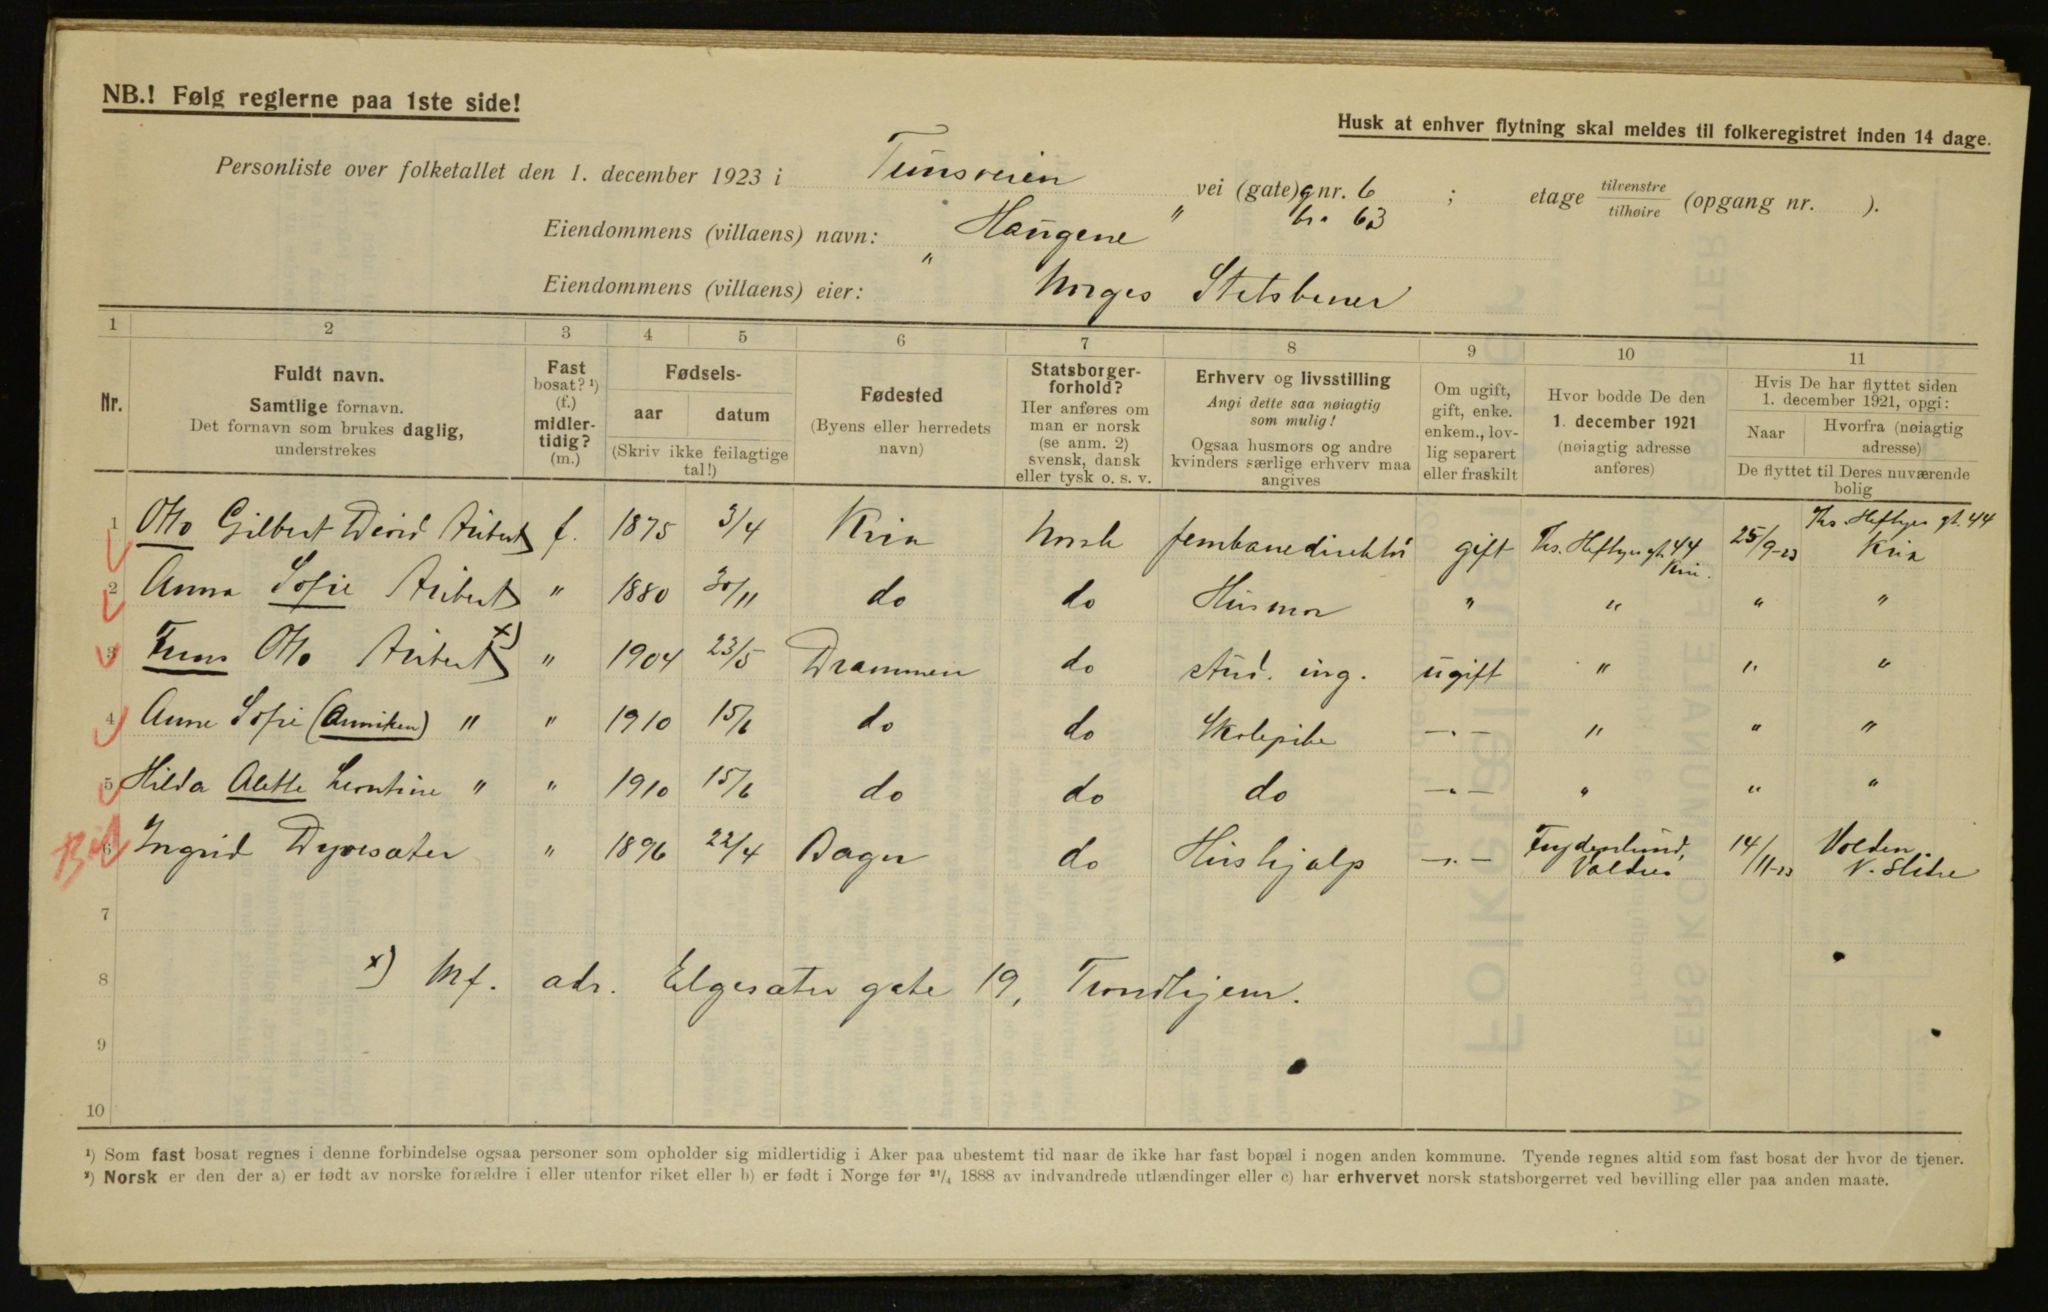 NB.! Følg reglerne paa 1ste side!
Husk at enhver flytning skal meldes til folkeregistret inden 14 dage.
Personliste over folketallet den 1. december 1923 i Tunsveien vei (gate) gnr. 6 ; etage tilvenstre tilhøire (opgang nr. ).
Eiendommens (villaens) navn: Haugene " 63
Eiendommens (villaens) eier: " Norges Statsbaner
1 2 3 4 5 6 7 8 9 10 11
Nr.
Fuldt navn.
Samtlige fornavn.
Det fornavn som brukes daglig,
understrekes
Fast
bosat? ¹)
(f.)
midler-
tidig?
(m.)
Fødsels-
aar datum
(Skriv ikke feilagtige
tal!)
Fødested
(Byens eller herredets
navn)
Statsborger-
forhold?
Her anføres om
man er norsk
(se anm. 2)
svensk, dansk
eller tysk o. s. v.
Erhverv og livsstilling
Angi dette saa nøiagtig
som mulig!
Ogsaa husmors og andre
kvinders særlige erhverv maa
angives
Om ugift,
gift, enke.
enkem., lov-
lig separert
eller fraskilt
Hvor bodde De den
1. december 1921
(nøiagtig adresse
anføres)
Hvis De har flyttet siden
1. december 1921, opgi:
Naar
Hvorfra (nøiagtig
adresse)
De flyttet til Deres nuværende
bolig
1 Otto Gilbert David Aubert f. 1875 3/4 Kria Norsk jernbanedirektør gift Ths. Heftyes gt. 44 Kria. 25/9-23 Ths. Heftyes gt. 44 Kria
2 Anna Sofie Aubert " 1880 30/11 do do Husmor " " " "
3 Otto Aubert x) " 1904 23/5 Drammen do stud. ing. ugift " " "
4 Anne Sofie (Anniken) " " 1910 15/6 do do Skolepike —"— " " "
5 Hilda Alette Leontine " " 1910 15/6 do do do —"— " " "
6 Ingrid Dyvesæter " 1896 22/4 Bagn do Hushjælp —"— Frydenlund, Valdres 14/11-23 Volden V. Slidre
7
8 x) adr. Elgesæter gate 19, Trondhjem.
9
10
¹) Som fast bosat regnes i denne forbindelse ogsaa personer som opholder sig midlertidig i Aker paa ubestemt tid naar de ikke har fast bopæl i nogen anden kommune. Tyende regnes altid som fast bosat der hvor de tjener.
²) Norsk er den der a) er født av norske forældre i eller utenfor riket eller b) er født i Norge før 21/4 1888 av indvandrede utlændinger eller c) har erhvervet norsk statsborgerret ved bevilling eller paa anden maate.